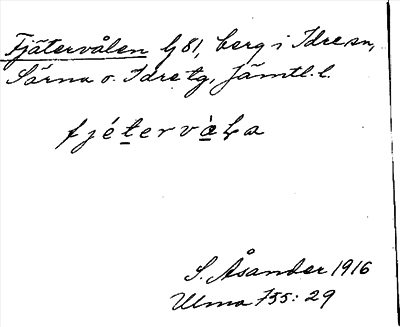 Fjätervålen G 81, berg i Idre sn,
Särna o. Idre tg, Jämtl. l.
fjétervàƚa
S. Åsander 1916
Ulma 755: 29